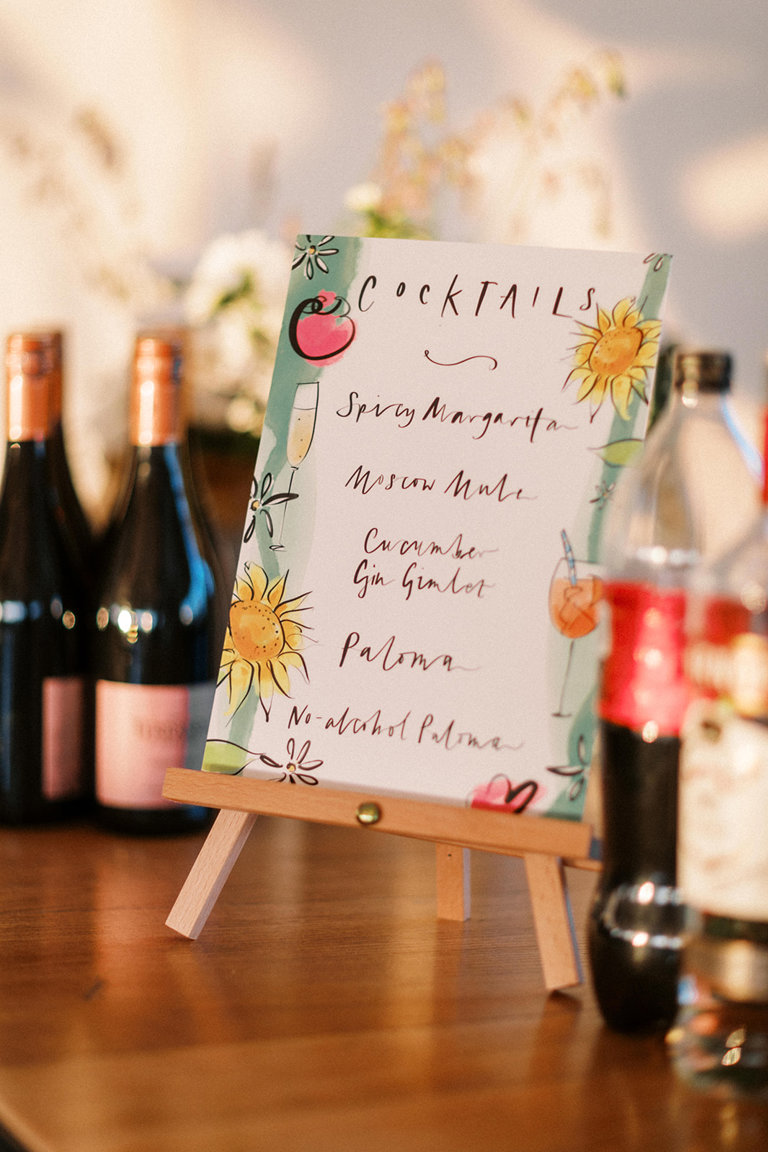 COCKTAILS
Spicy Margarita
Moscow Mule
Cucumber
Gin Gimlet
Paloma
No-alcohol Paloma